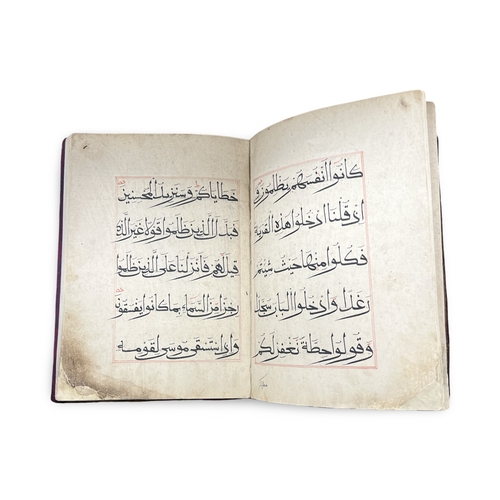 كانوا انفسهم يظلمون و
اذ قلنا ادخلوا هذه القرية
فكلوا منها حيث شئتم
رغدا وادخلوا الباب سجدا
وقولوا حطة نغفر لكم
خطاياكم وسنزيد المحسنين
فبدل الذين ظلموا قولا غير الذي
قيل لهم فانزلنا على الذين ظلموا
رجزا من السماء بما كانوا يفسقون
واذ استسقى موسى لقومه